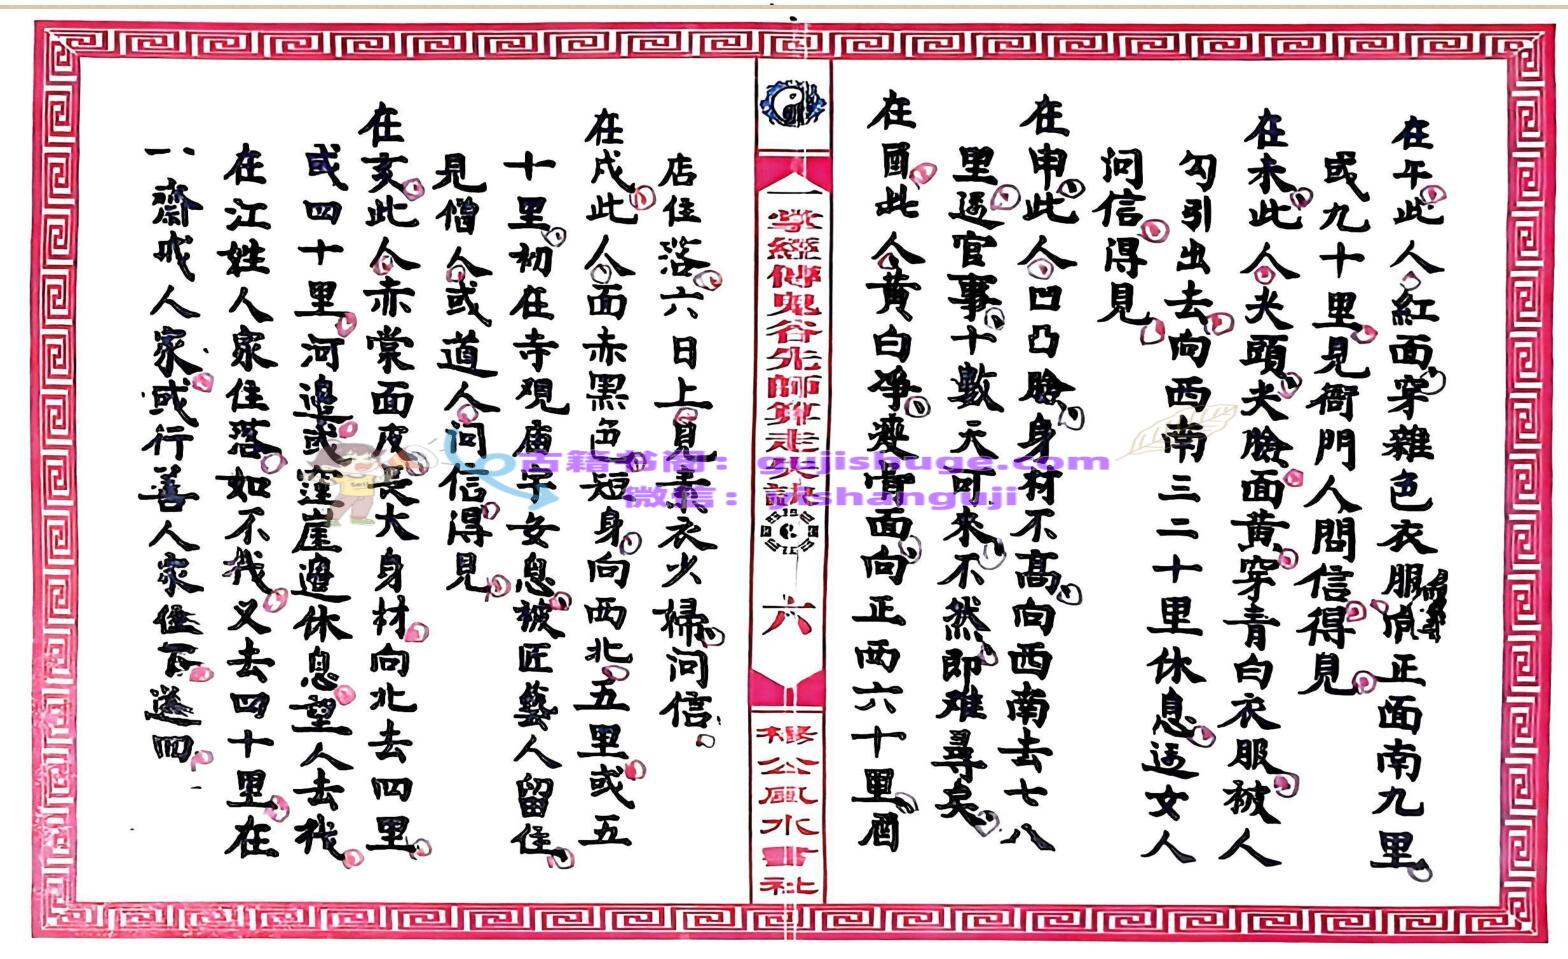 在午此人紅面穿雜色衣服向正面南九里
或九十里見衙門人問信得見
在未此人夾頭夾臉面黄穿青白衣服被人
勾引出去向西南三二十里休息逢女人
问信得見
在申此人凹凸臉身材不高向西南去七八
里逢官事十數天可來不然即难尋矣
在酉此人黄白净瘦骨面向正西六十里酒
一掌經傳鬼谷先師算走失訣
六
楊公風水書社
店住落六日上見素衣少婦问信
在戌此人面赤黑色短身向西北五里或五
十里初在寺观庙宇安息被匠藝人留住
見僧人或道人问信得見
在亥此人赤棠面皮長大身材向北去四里
或四十里河邉或窪崖邉休息望人去找
在江姓人家住落如不找又去四十里在
一齋戒人家或行善人家住下送回
古籍书阁：gujishuge.com
微信：yishanguji